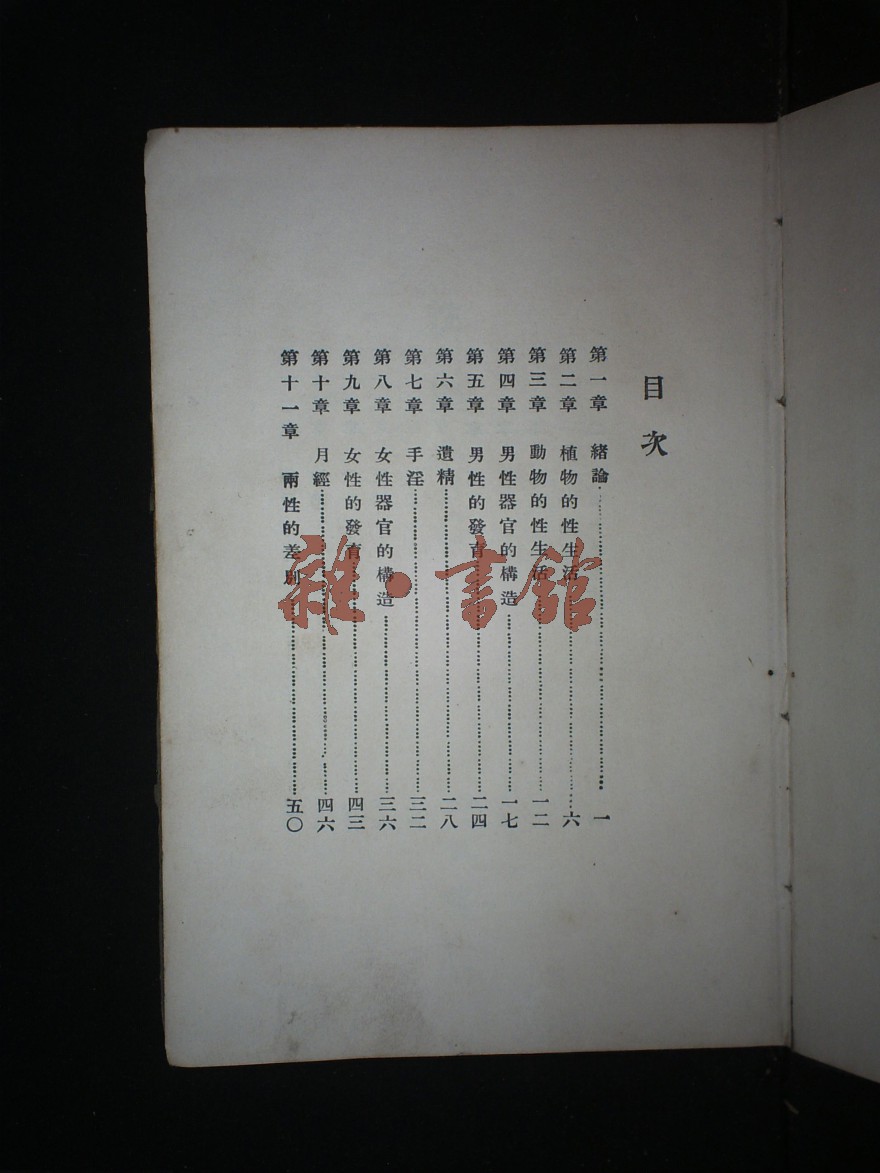 目次
第一章 緒論 一
第二章 植物的性生活 六
第三章 動物的性生活 一二
第四章 男性器官的構造 一七
第五章 男性的發育 二四
第六章 遺精 二八
第七章 手淫 三二
第八章 女性器官的構造 三六
第九章 女性的發育 四三
第十章 月經 四六
第十一章 兩性的差別 五〇
雜·書館